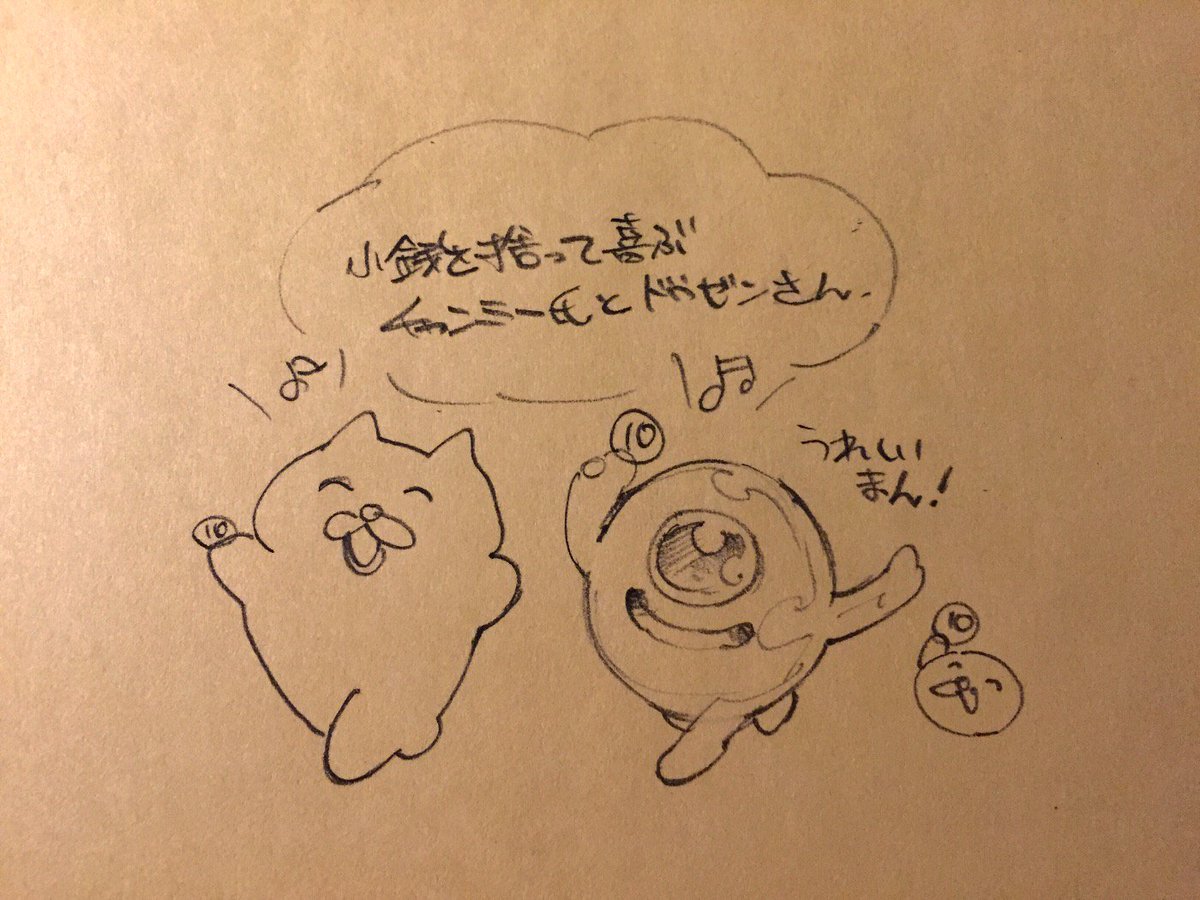 小銭を拾って喜ぶ
チャンミー氏とドヤゼンさん.
うれしい
まん!
10
10
10